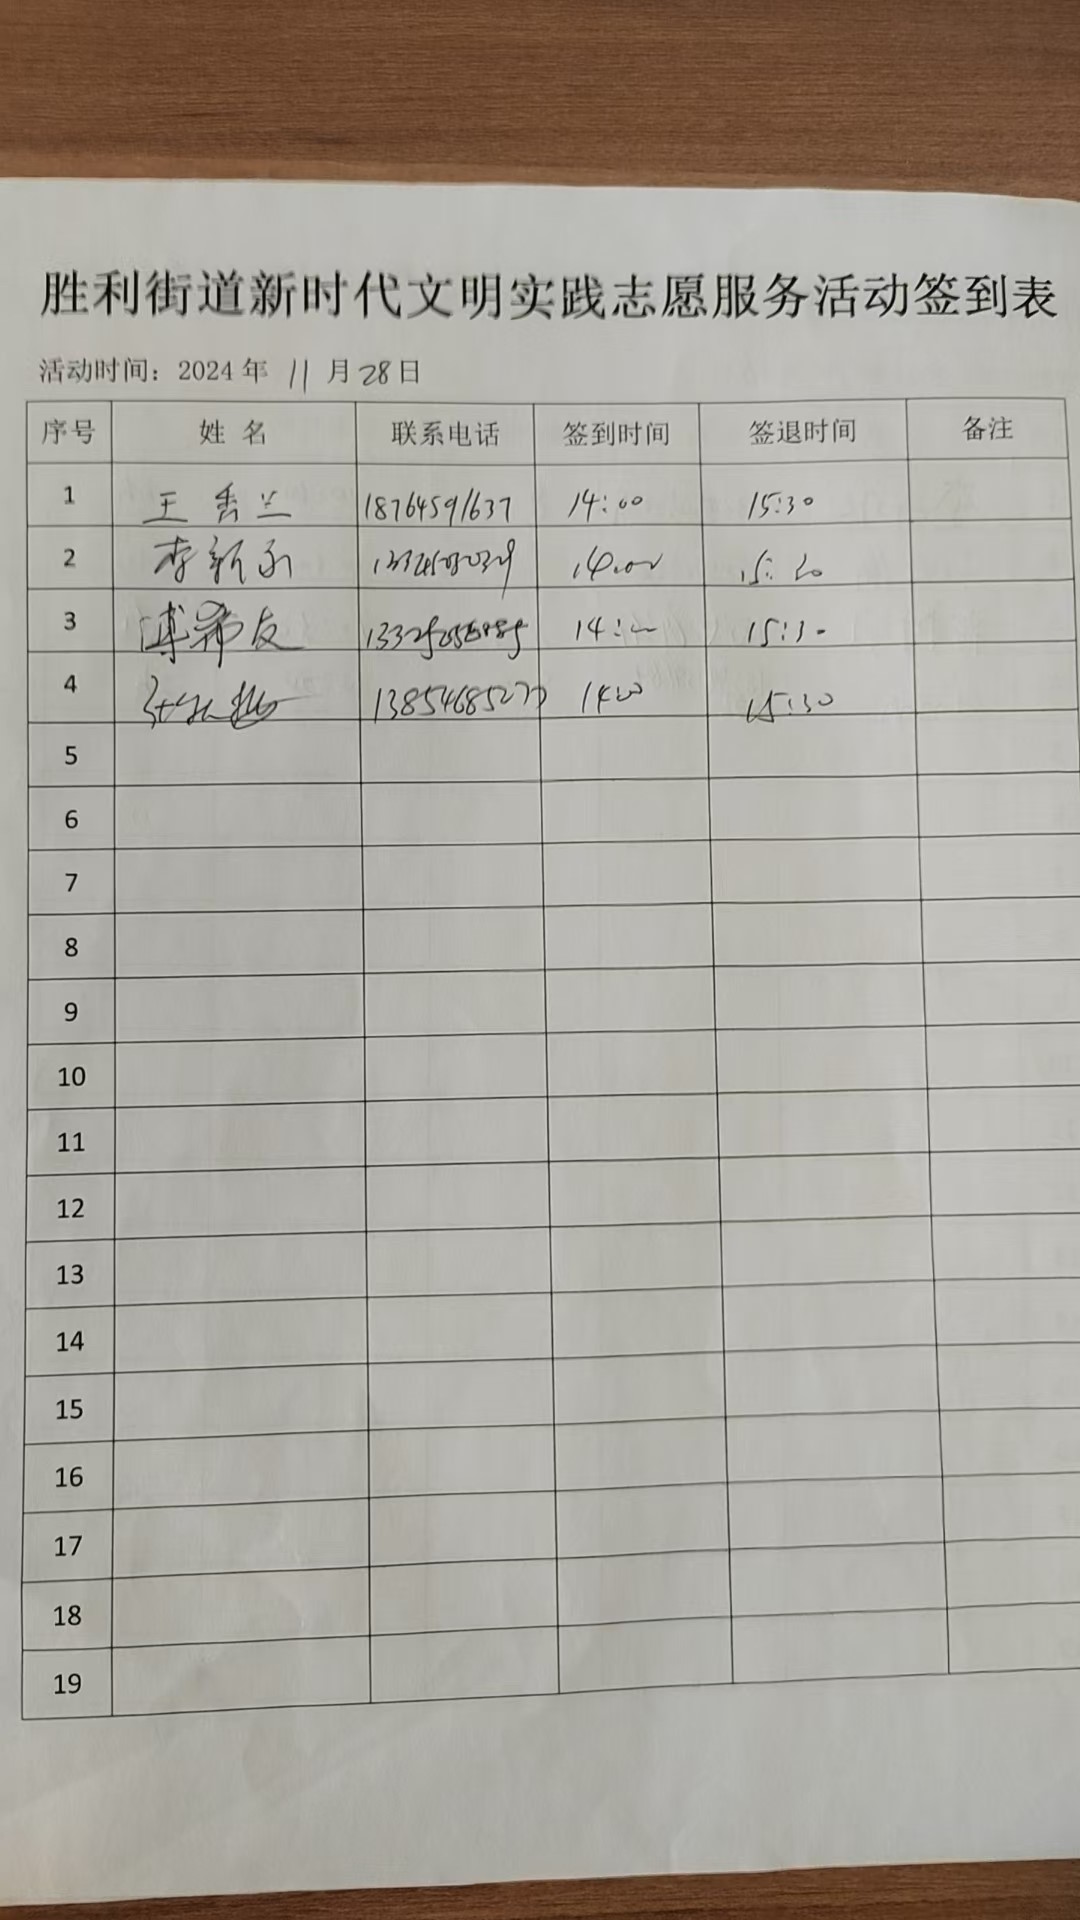 胜利街道新时代文明实践志愿服务活动签到表
活动时间：2024年 11 月 28 日
序号 姓 名 联系电话 签到时间 签退时间 备注
1 王秀兰 18764591637 14:00 15:30
2 李新永 14:00 15:30
3 友 14:00 15:30
4 1400 15:30
5
6
7
8
9
10
11
12
13
14
15
16
17
18
19